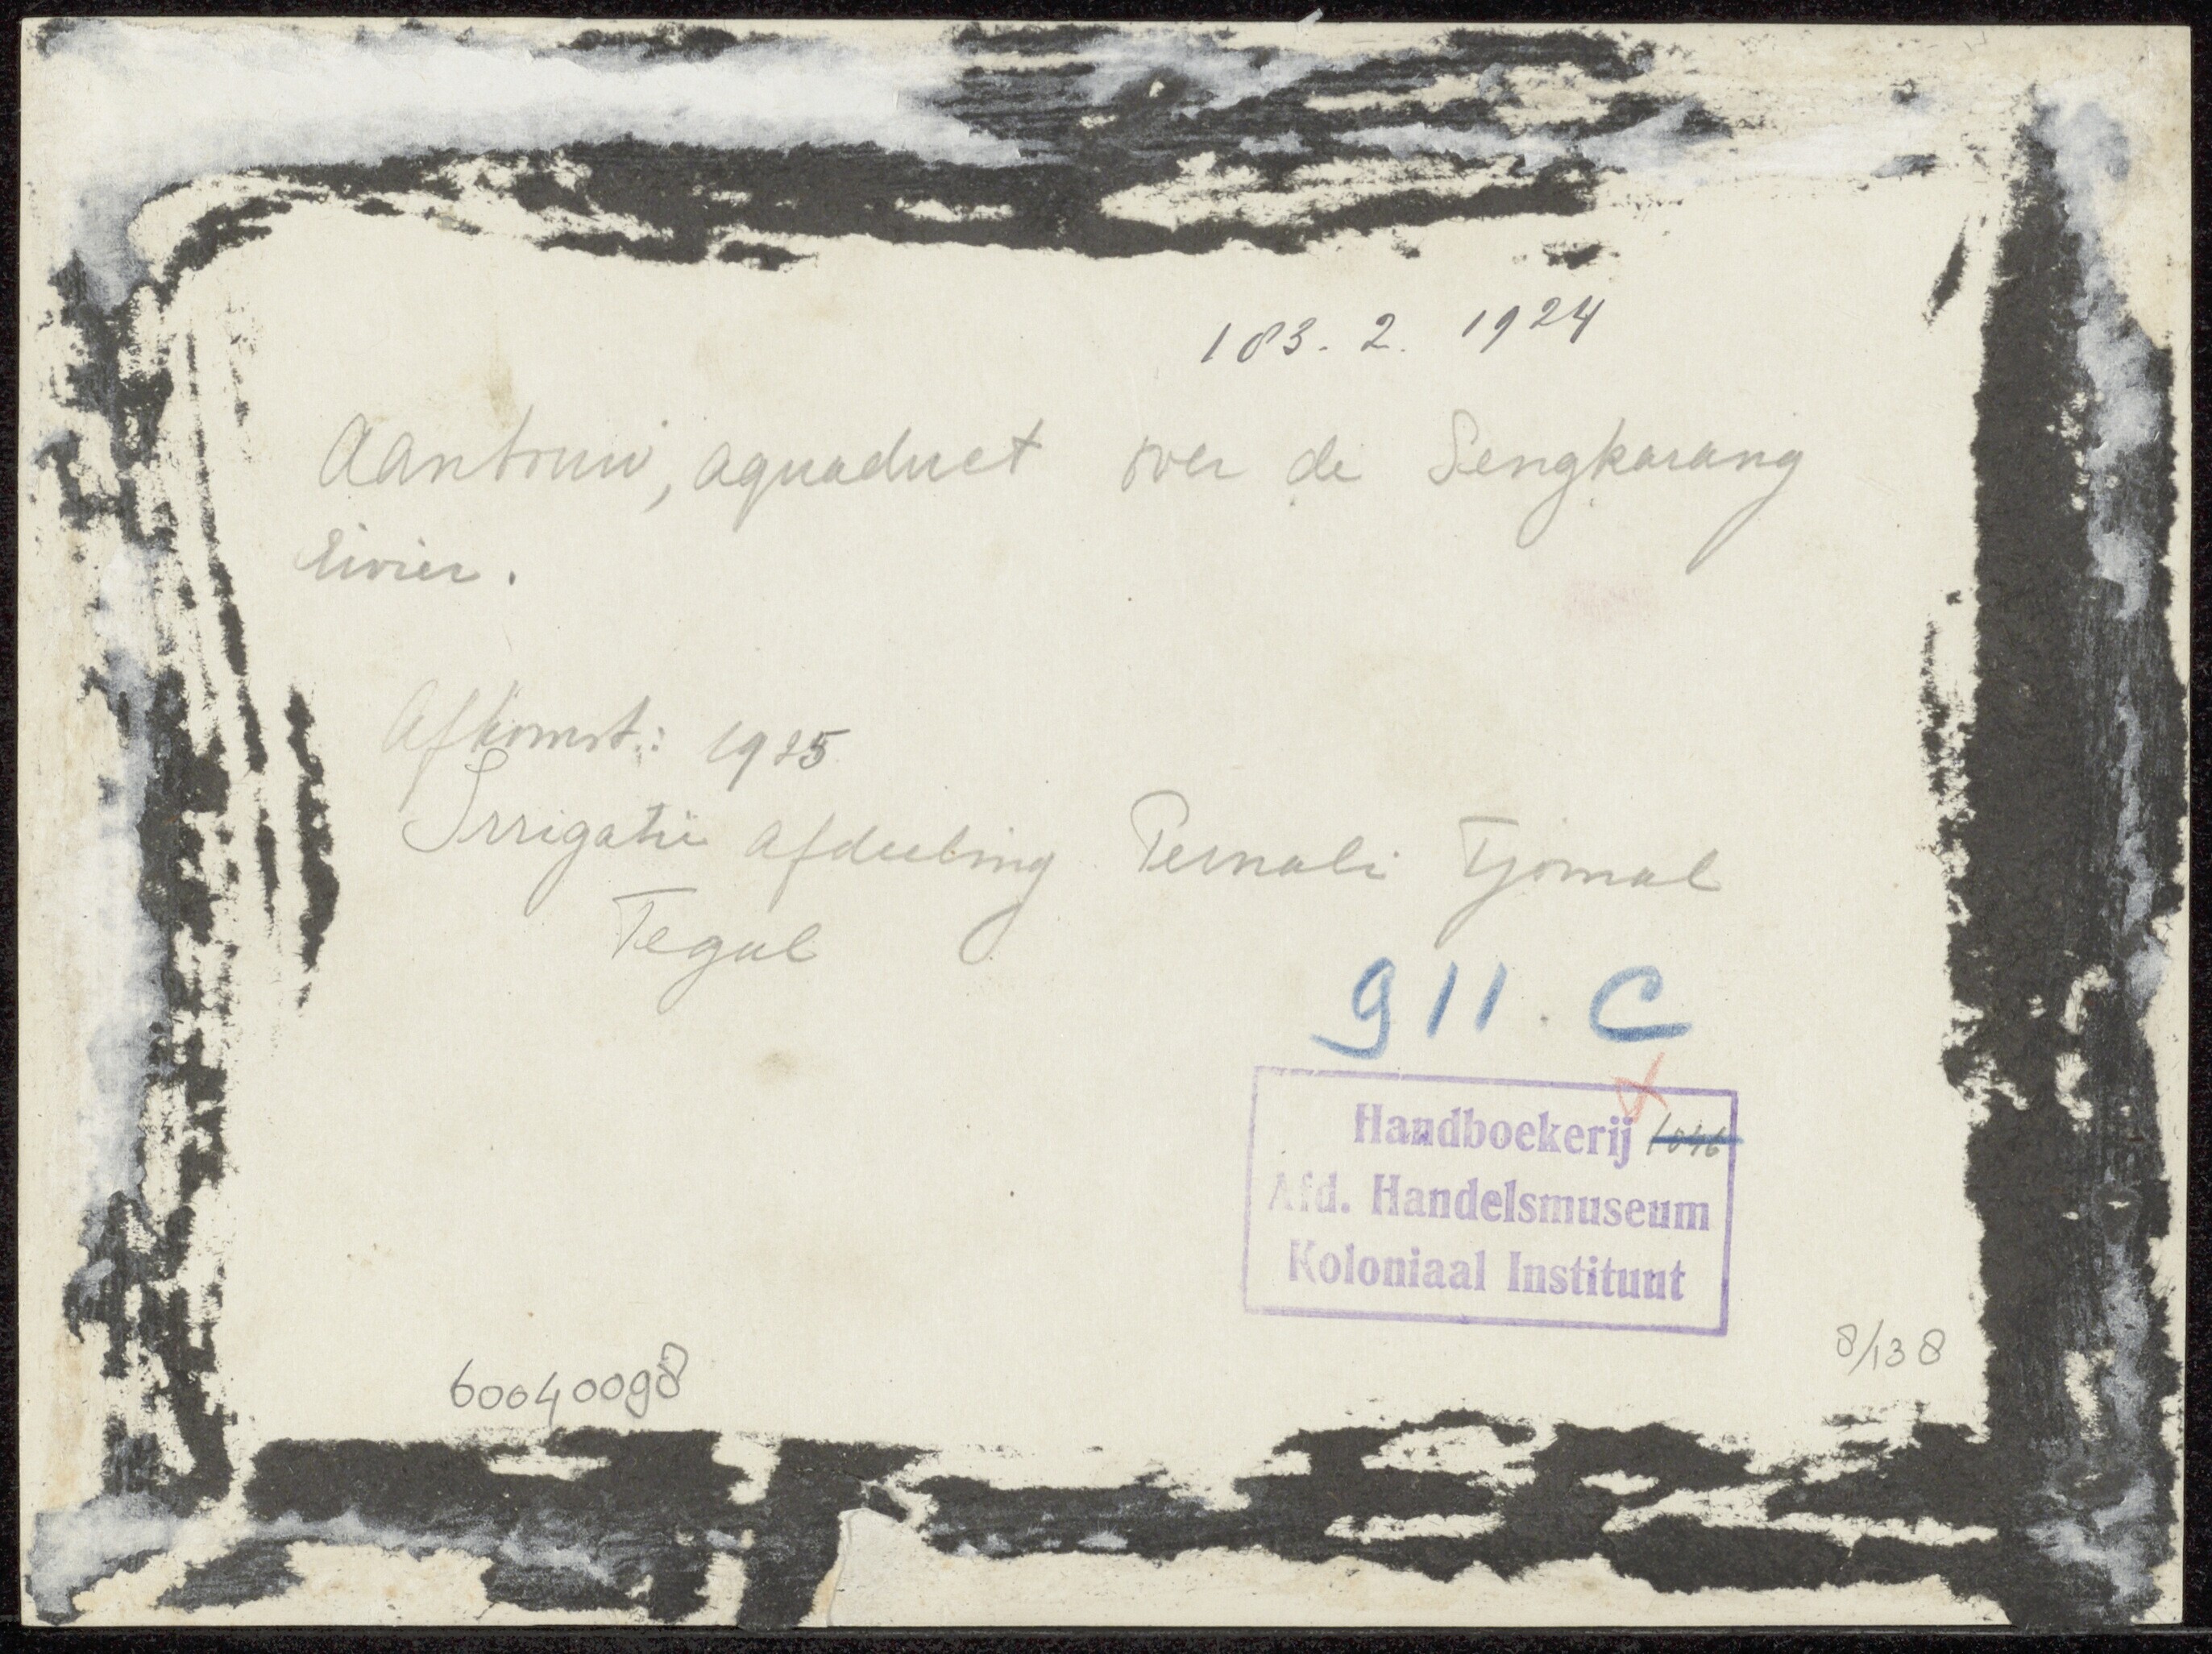 183. 2. 1924
Aanbouw, aquaduct over de Sengkarang
rivier.
Afkomst: 1925
Irrigatie afdeeling Pemali Tjomal
Tegal
911. C
Handboekerij 1046
Afd. Handelsmuseum
Koloniaal Instituut
8/138
60040098